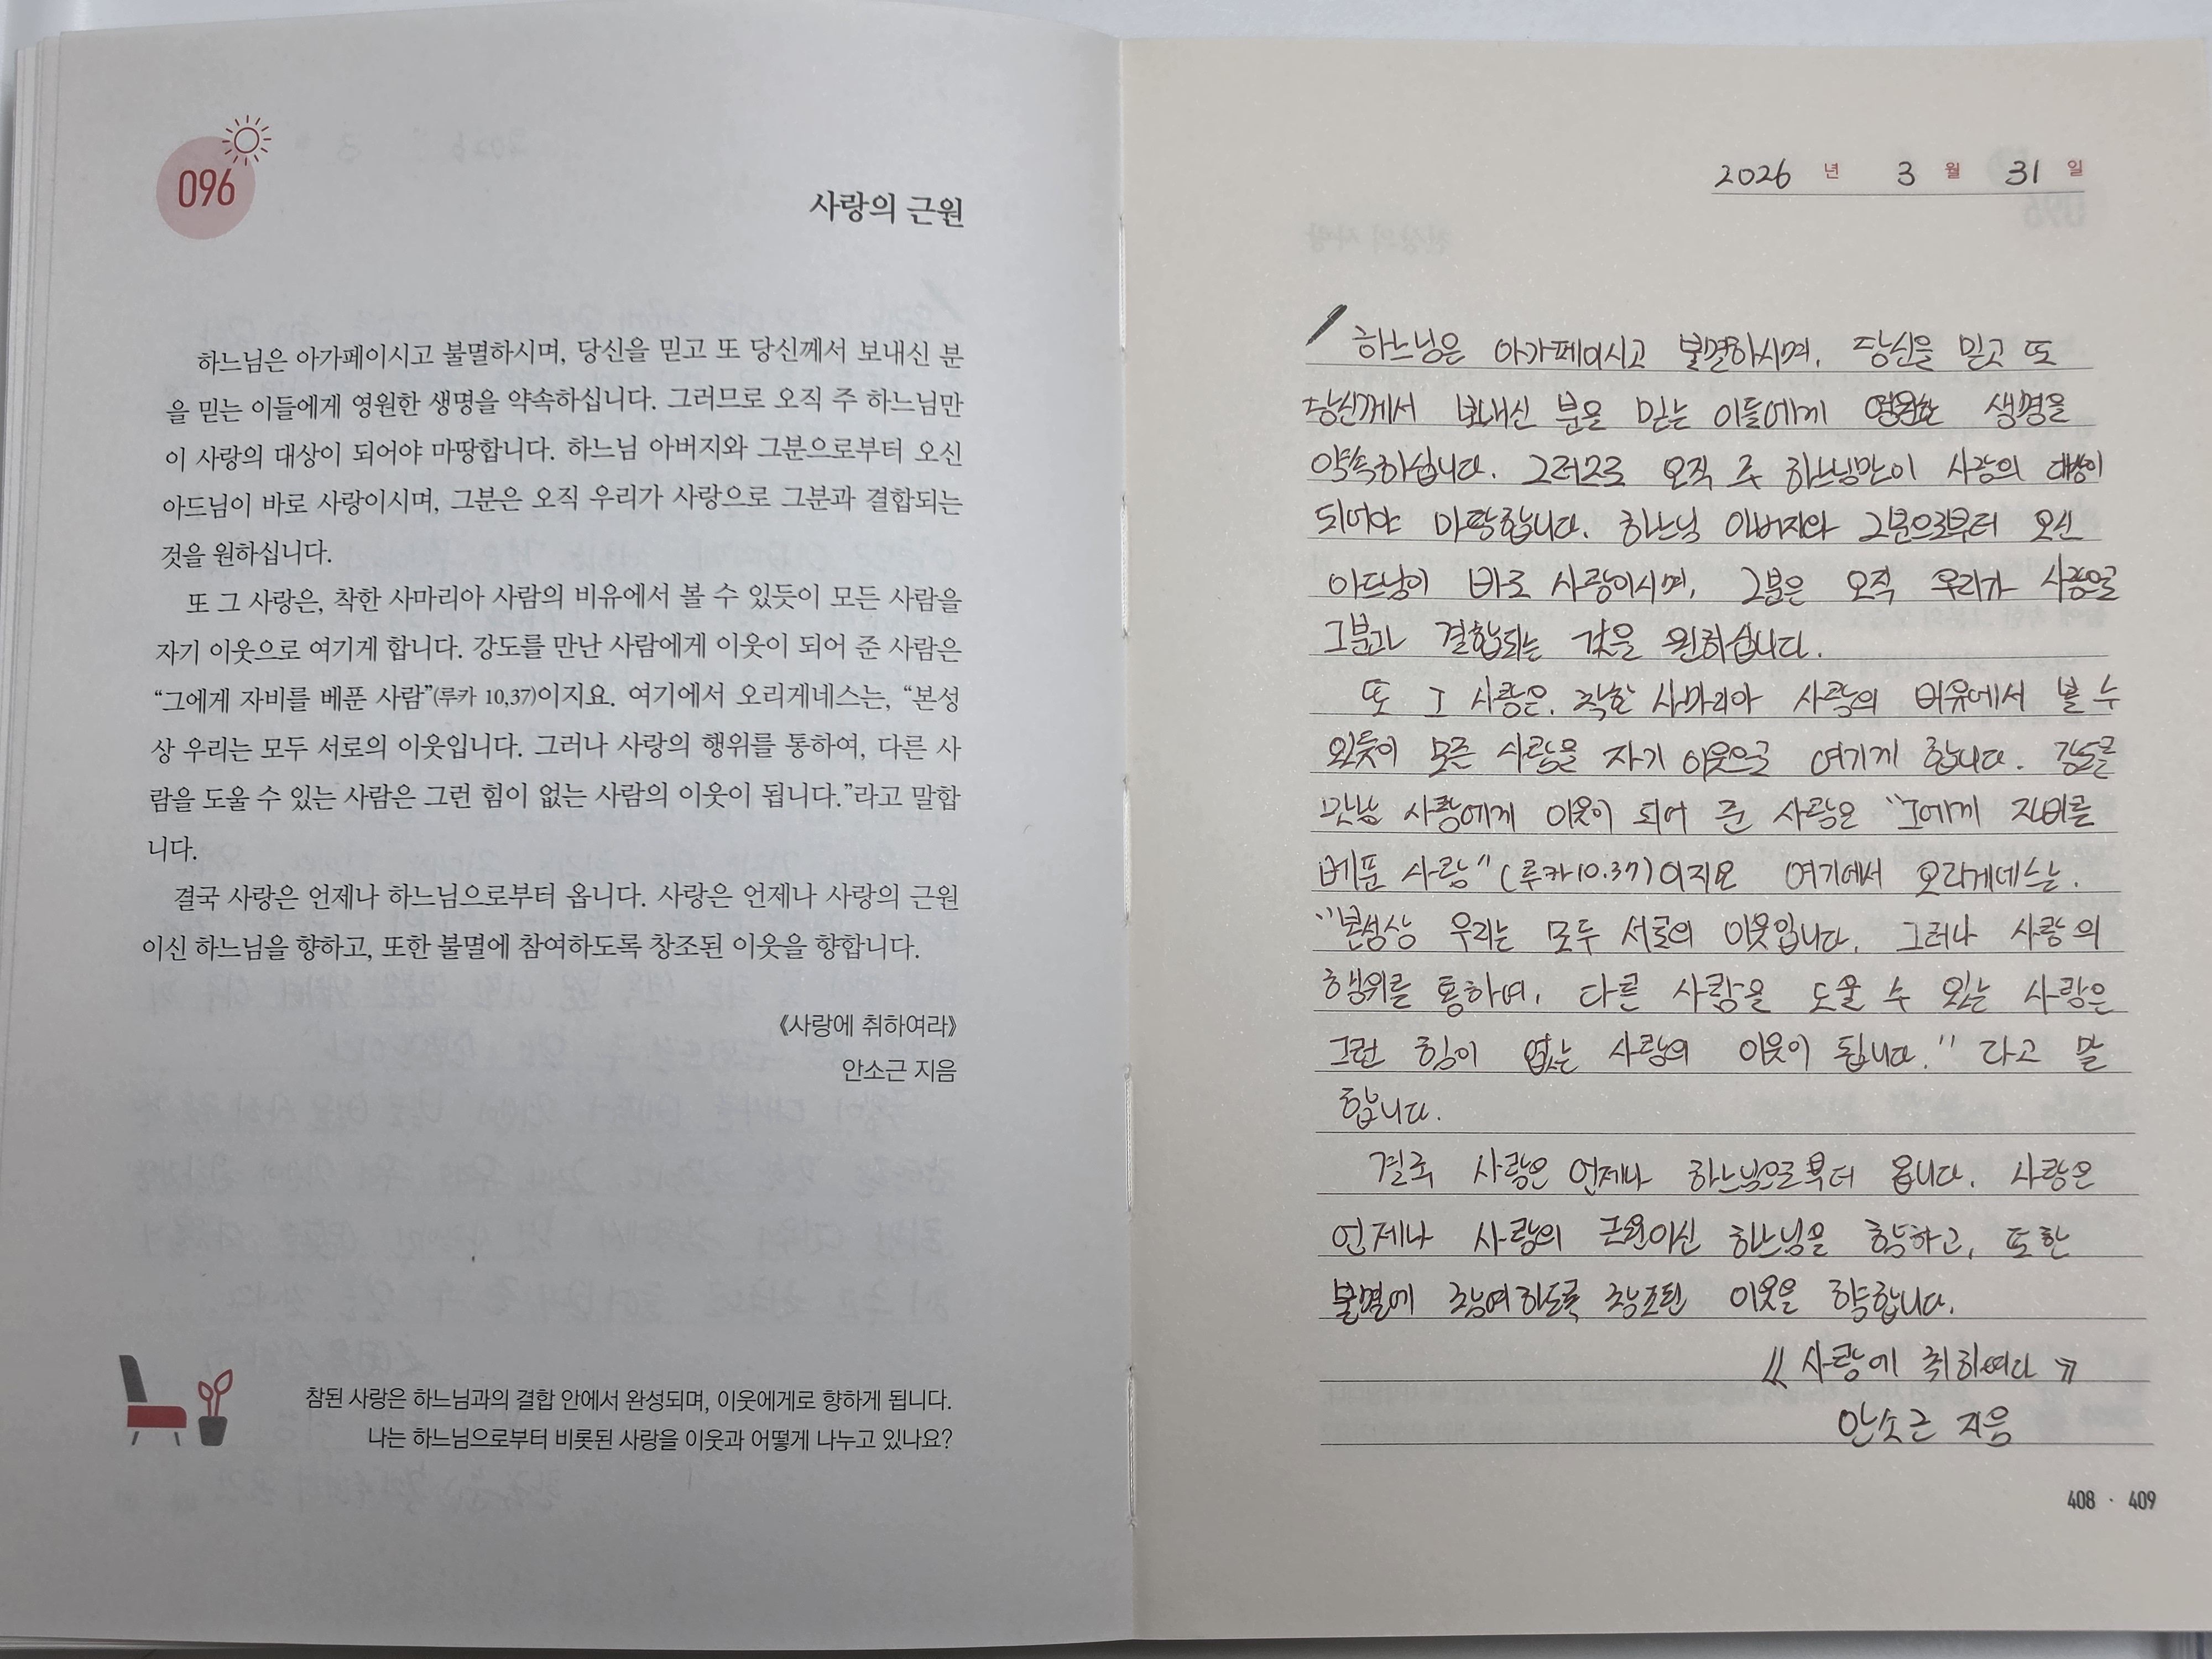 096
사랑의 근원
하느님은 아가페이시고 불멸하시며, 당신을 믿고 또 당신께서 보내신 분
을 믿는 이들에게 영원한 생명을 약속하십니다. 그러므로 오직 주 하느님만
이 사랑의 대상이 되어야 마땅합니다. 하느님 아버지와 그분으로부터 오신
아드님이 바로 사랑이시며, 그분은 오직 우리가 사랑으로 그분과 결합되는
것을 원하십니다.
또 그 사랑은, 착한 사마리아 사람의 비유에서 볼 수 있듯이 모든 사람을
자기 이웃으로 여기게 합니다. 강도를 만난 사람에게 이웃이 되어 준 사람은
“그에게 자비를 베푼 사람”(루카 10,37)이지요. 여기에서 오리게네스는, “본성
상 우리는 모두 서로의 이웃입니다. 그러나 사랑의 행위를 통하여, 다른 사
람을 도울 수 있는 사람은 그런 힘이 없는 사람의 이웃이 됩니다.”라고 말합
니다.
결국 사랑은 언제나 하느님으로부터 옵니다. 사랑은 언제나 사랑의 근원
이신 하느님을 향하고, 또한 불멸에 참여하도록 창조된 이웃을 향합니다.
《사랑에 취하여라》
안소근 지음
참된 사랑은 하느님과의 결합 안에서 완성되며, 이웃에게로 향하게 됩니다.
나는 하느님으로부터 비롯된 사랑을 이웃과 어떻게 나누고 있나요?
2026 년 3 월 31 일
하느님은 아가페이시고 불멸하시며, 당신을 믿고 또
당신께서 보내신 분을 믿는 이들에게 영원한 생명을
약속하십니다. 그러므로 오직 주 하느님만이 사랑의 대상이
되어야 마땅합니다. 하느님 아버지와 그분으로부터 오신
아드님이 바로 사랑이시며, 그분은 오직 우리가 사랑으로
그분과 결합되는 것을 원하십니다.
또 그 사랑은, 착한 사마리아 사람의 비유에서 볼 수
있듯이 모든 사람을 자기 이웃으로 여기게 합니다. 강도를
만난 사람에게 이웃이 되어 준 사람은 “그에게 자비를
베푼 사람”(루카10.37)이지요 여기에서 오리게네스는,
“본성상 우리는 모두 서로의 이웃입니다. 그러나 사랑의
행위를 통하여, 다른 사람을 도울 수 있는 사람은
그런 힘이 없는 사람의 이웃이 됩니다.” 라고 말
합니다.
결국 사랑은 언제나 하느님으로부터 옵니다. 사랑은
언제나 사랑의 근원이신 하느님을 향하고, 또한
불멸에 참여하도록 창조된 이웃을 향합니다.
《사랑에 취하여라》
안소근 지음
408 · 409